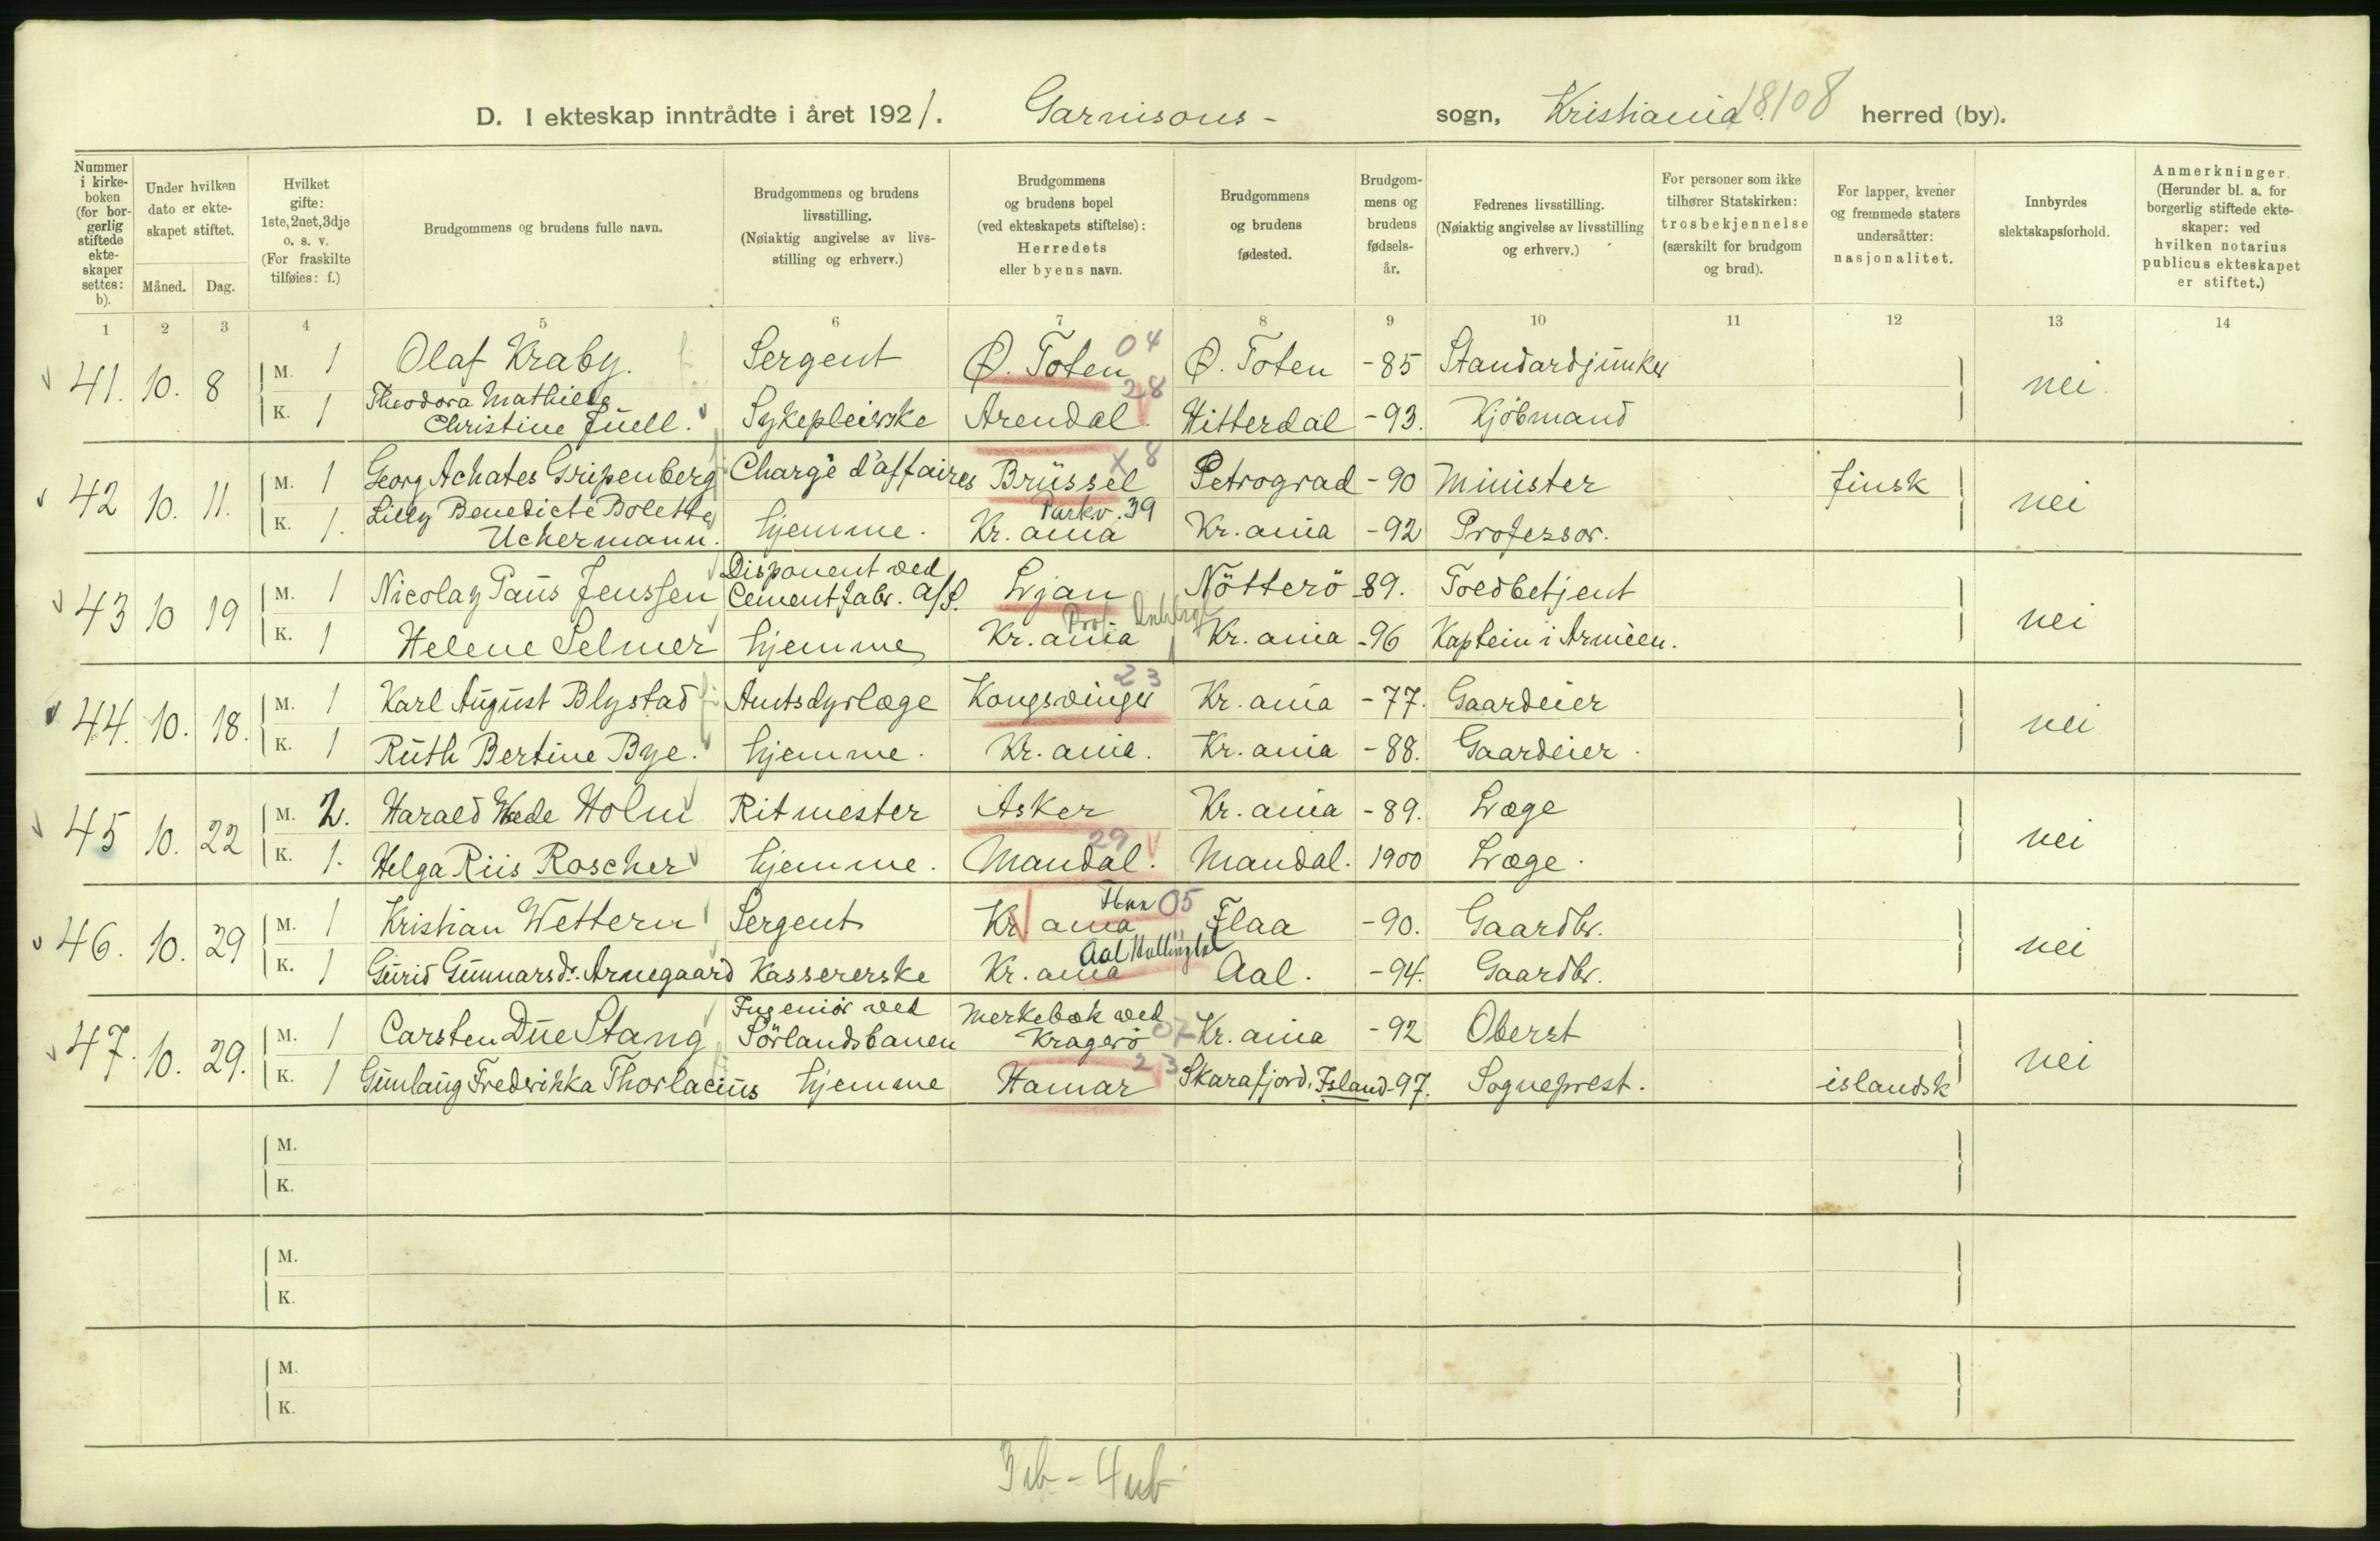 D. I ekteskap inntrådte i året 1921. Garnisons- sogn, Kristiania 18108 herred (by).
Nummer i kirkeboken (for borgerlig stiftede ekteskaper settes: b).
Under hvilken dato er ekteskapet stiftet.
Måned. Dag.
Hvilket gifte: 1ste, 2net, 3dje o. s. v. (For fraskilte tilføies: f.)
Brudgommens og brudens fulle navn.
Brudgommens og brudens livsstilling. (Nøiaktig angivelse av livsstilling og erhverv.)
Brudgommens og brudens bopel (ved ekteskapets stiftelse): Herredets eller byens navn.
Brudgommens og brudens fødested.
Brudgommens og brudens fødselsår.
Fedrenes livsstilling. (Nøiaktig angivelse av livsstilling og erhverv.)
For personer som ikke tilhører Statskirken: trosbekjennelse (særskilt for brudgom og brud).
For lapper, kvener og fremmede staters undersåtter: nasjonalitet.
Innbyrdes slektskapsforhold.
Anmerkninger. (Herunder bl. a. for borgerlig stiftede ekteskaper: ved hvilken notarius publicus ekteskapet er stiftet.)
1 2 3 4 5 6 7 8 9 10 11 12 13 14
04
41. 10. 8 M. 1 Olaf Kraby. Sergent Ø. Toten Ø. Toten -85 Standardjunker nei.
28
K. 1 Theodora Mathilde Christine Juell. Sykepleierske Arendal. Hitterdal -93. Kjöbmand
x 8
42 10. 11. M. 1 Georg Achates Gripenberg Chargé d'affaires Brüssel Petrograd -90 Minister finsk nei
Parkv. 39
K. 1. Lilly Benedicte Bolette Uchermann. hjemme. Kr.ania Kr.ania -92 Professor.
43 10 19 M. 1 Nicolay Paus Jenssen Disponent ved Cementfabr. A/S. Ljan Nötterö 89. Toldbetjent nei
K. 1 Helene Selmer hjemme Kr.ania Kr.ania -96 Kaptein i Armeen.
23
44. 10. 18. M. 1 Karl August Blystad Amtsdyrlæge Kongsvinger Kr.ania -77. Gaardeier nei
K. 1 Ruth Bertine Bye. hjemme. Kr.ania. Kr.ania -88. Gaardeier.
45 10. 22 M. 2. Harald Wede Holm Ritmester Asker Kr.ania -89. Læge nei
29
K. 1. Helga Riis Roscher hjemme. Mandal. Mandal. 1900 Læge.
05
46. 10. 29 M. 1 Kristian Wettern Sergent Kr.ania Flaa -90. Gaardbr. nei
Aal Hallingdal
K. 1 Gurid Gunnarsdr. Arnegaard Kassererske Kr.ania Aal. -94. Gaardbr.
47. 10. 29. M. 1 Carsten Due Stang Ingeniör ved Sörlandsbanen Merkebæk ved Kragerö 07 Kr.ania -92 Oberst nei
23
K. 1 Gunlaug Fredrikka Thorlacius hjemme Hamar Skarafjord, Island -97. Sogneprest. islandsk
M.
K.
M.
K.
M.
K.